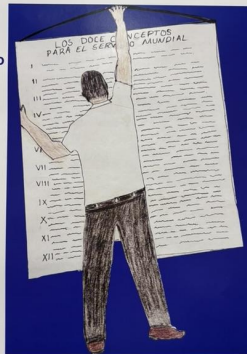 O
LOS DOCE CONCEPTOS
PARA EL SERV O MUNDIAL
I
II
III
IV
VI
VII
VIII
IX
X
XI
XII